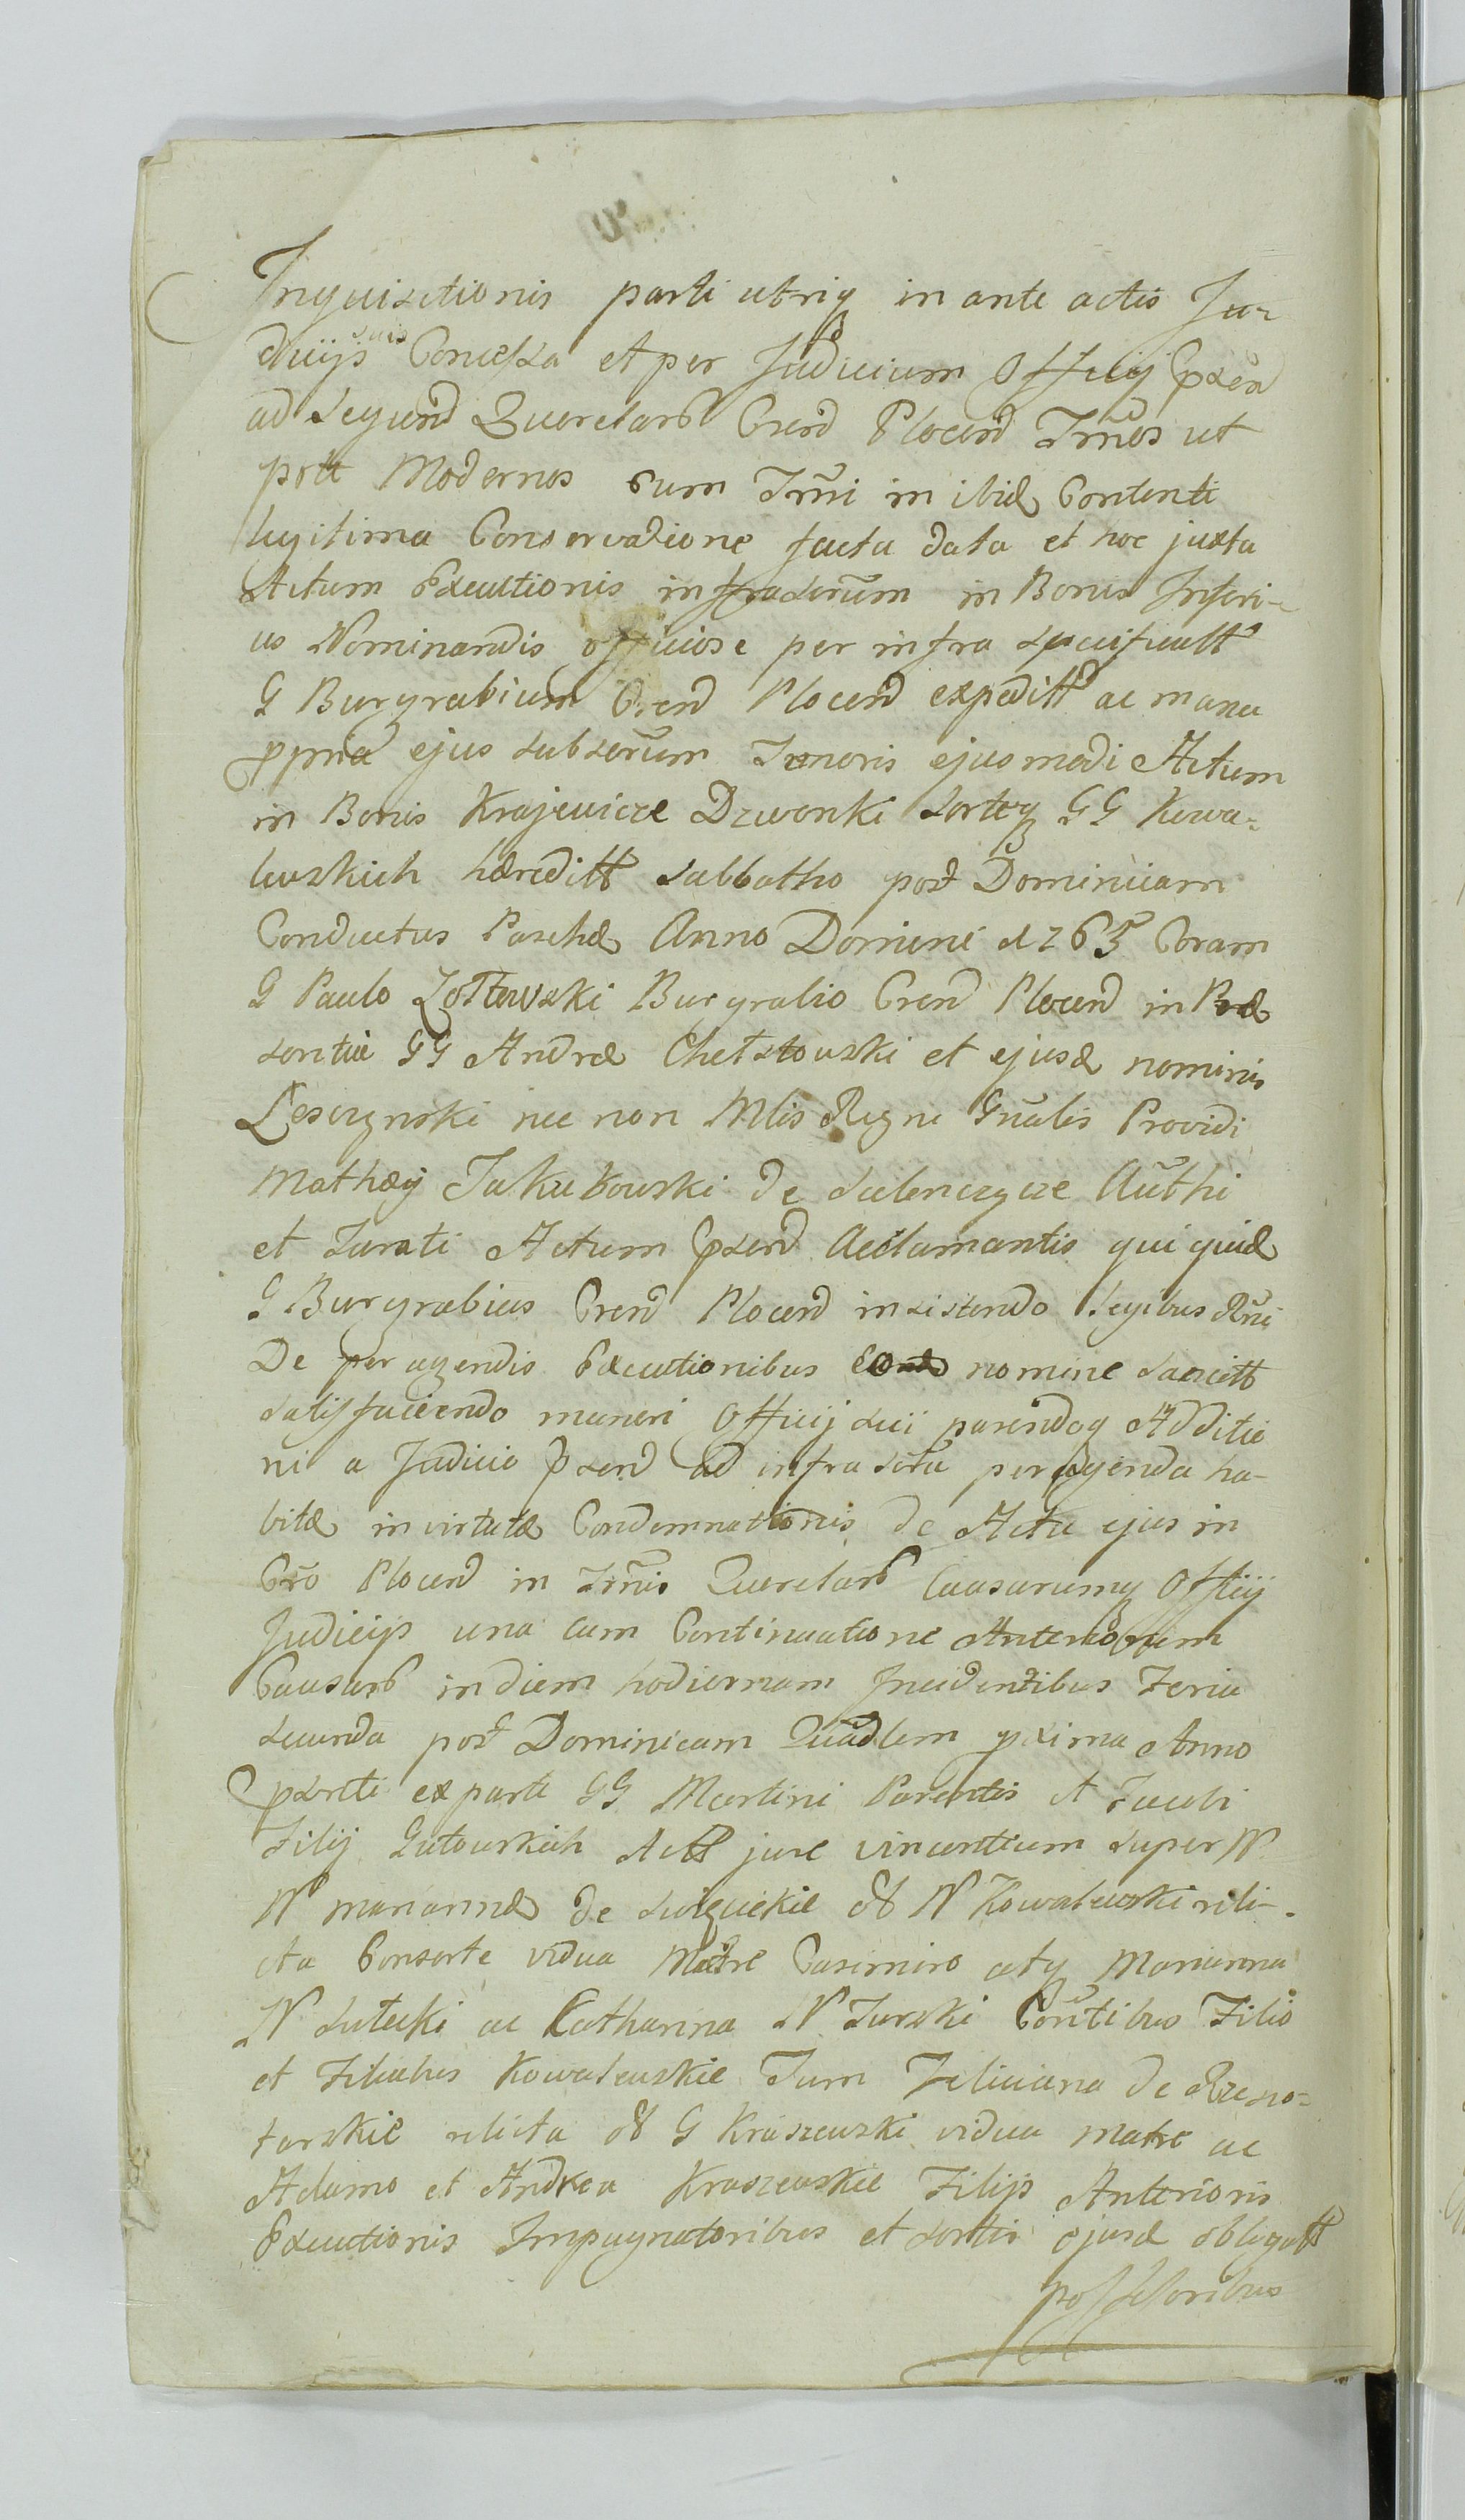 Inquisitionis parti utriq in ante actis Ju=
dicijs suis Concessa et per Judicium Officij Pxsen
ad Legend Querelarū Crend Plocend Trmos ut
pote Modernos cum Trmi in ibid Contenti
legitima Conservatione facta data et hoc juxta
Actum Executionis infrascrum in Bonis Inferi=
us Nominandis officiose per infra specificatt
G Burgrabium Crend Plocend expeditt ac manu
ppria ejus subscrum Tenoris ejusmodi Actum
in Bonis Krajewicze Dzwonki Sorteq GG Kowa=
lewskich hæreditt Sabbatho post Dominicam
Conductus Paschæ Anno Domini 1765 Coram
G Paulo Zołtowski Burgrabio Crend Plocend in Præ
sentia GG Andræ Chełstowski et ejusd nominis
Lesczynski nec non Mlis Regni Gnalis Providi
Mathæij Jakubowski de Sulenczyce Authi
et Jurati Actum Pxsend Acclamantis qui quid
G Burgrabius Crend Plocend insistendo Legibus Rni
De per agendis Executionibus nomine sancitt
satisfaciendo muneri Officij sui parendoq Additio
ni a Judicio Pxsend ad infra scra peragenda ha-
bitæ in virtute Condemnationis de Actu ejus in
Cro Plocend in Trmis Querelarū Causarumq Officij
Judicijs una cum Continuatione Anteriorum
Causarū in diem hodiernam Incidentibus Feria
Secunda post Dominicam Quadlem pxima Anno
pxsenti ex parte GG Martini Parentis et Jacobi
Filij Gutowskich Actt jure vincentium super N
N Marianna de N Kowalewski reli=
cta Consorte vidua Matre Casimiro atq Marianna
N Lutecki ac Catharina N Turski Conttibus Filio
et Filiabus Kowalewskie Tum Feliciana de Rzeszo=
tarskie relicta G Kraszewski vidua Matre ac
Adamo et Andrea Kraszewskie Filijs Anterioris
Executionis Impugnatoribus et sortis ejusd obligatt
possessoribus